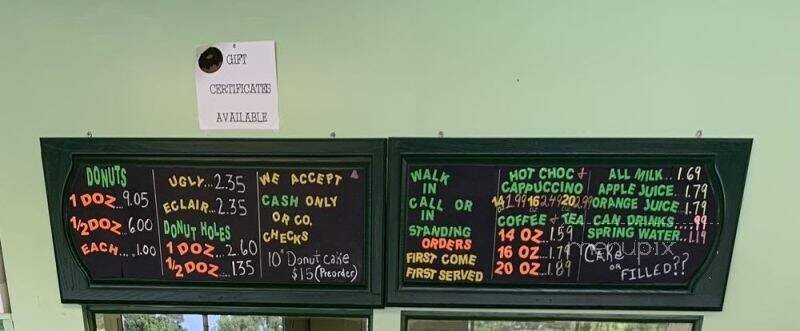 GIFT
CERTIFICATES
AVAILABLE
DONUTS
1 DOZ...9.05
1/2 DOZ..6.00
EACH....1.00
UGLY...2.35
ECLAIR...2.35
DONUT HOLES
1 DOZ....2.60
1/2 DOZ....1.35
WE ACCEPT
CASH ONLY
OR CO.
CHECKS
10" Donut cake
$15 (Preorder)
WALK
IN
CALL OR
IN
STANDING
ORDERS
FIRST COME
FIRST SERVED
HOT CHOC &
CAPPUCCINO
14 1.99 16 2.49 20 2.99
COFFEE & TEA
14 OZ...1.59
16 OZ...1.79
20 OZ...1.89
ALL MILK...1.69
APPLE JUICE...1.79
ORANGE JUICE.1.79
CAN DRINKS....99
SPRING WATER..1.19
CAKE
OR FILLED??
menupix